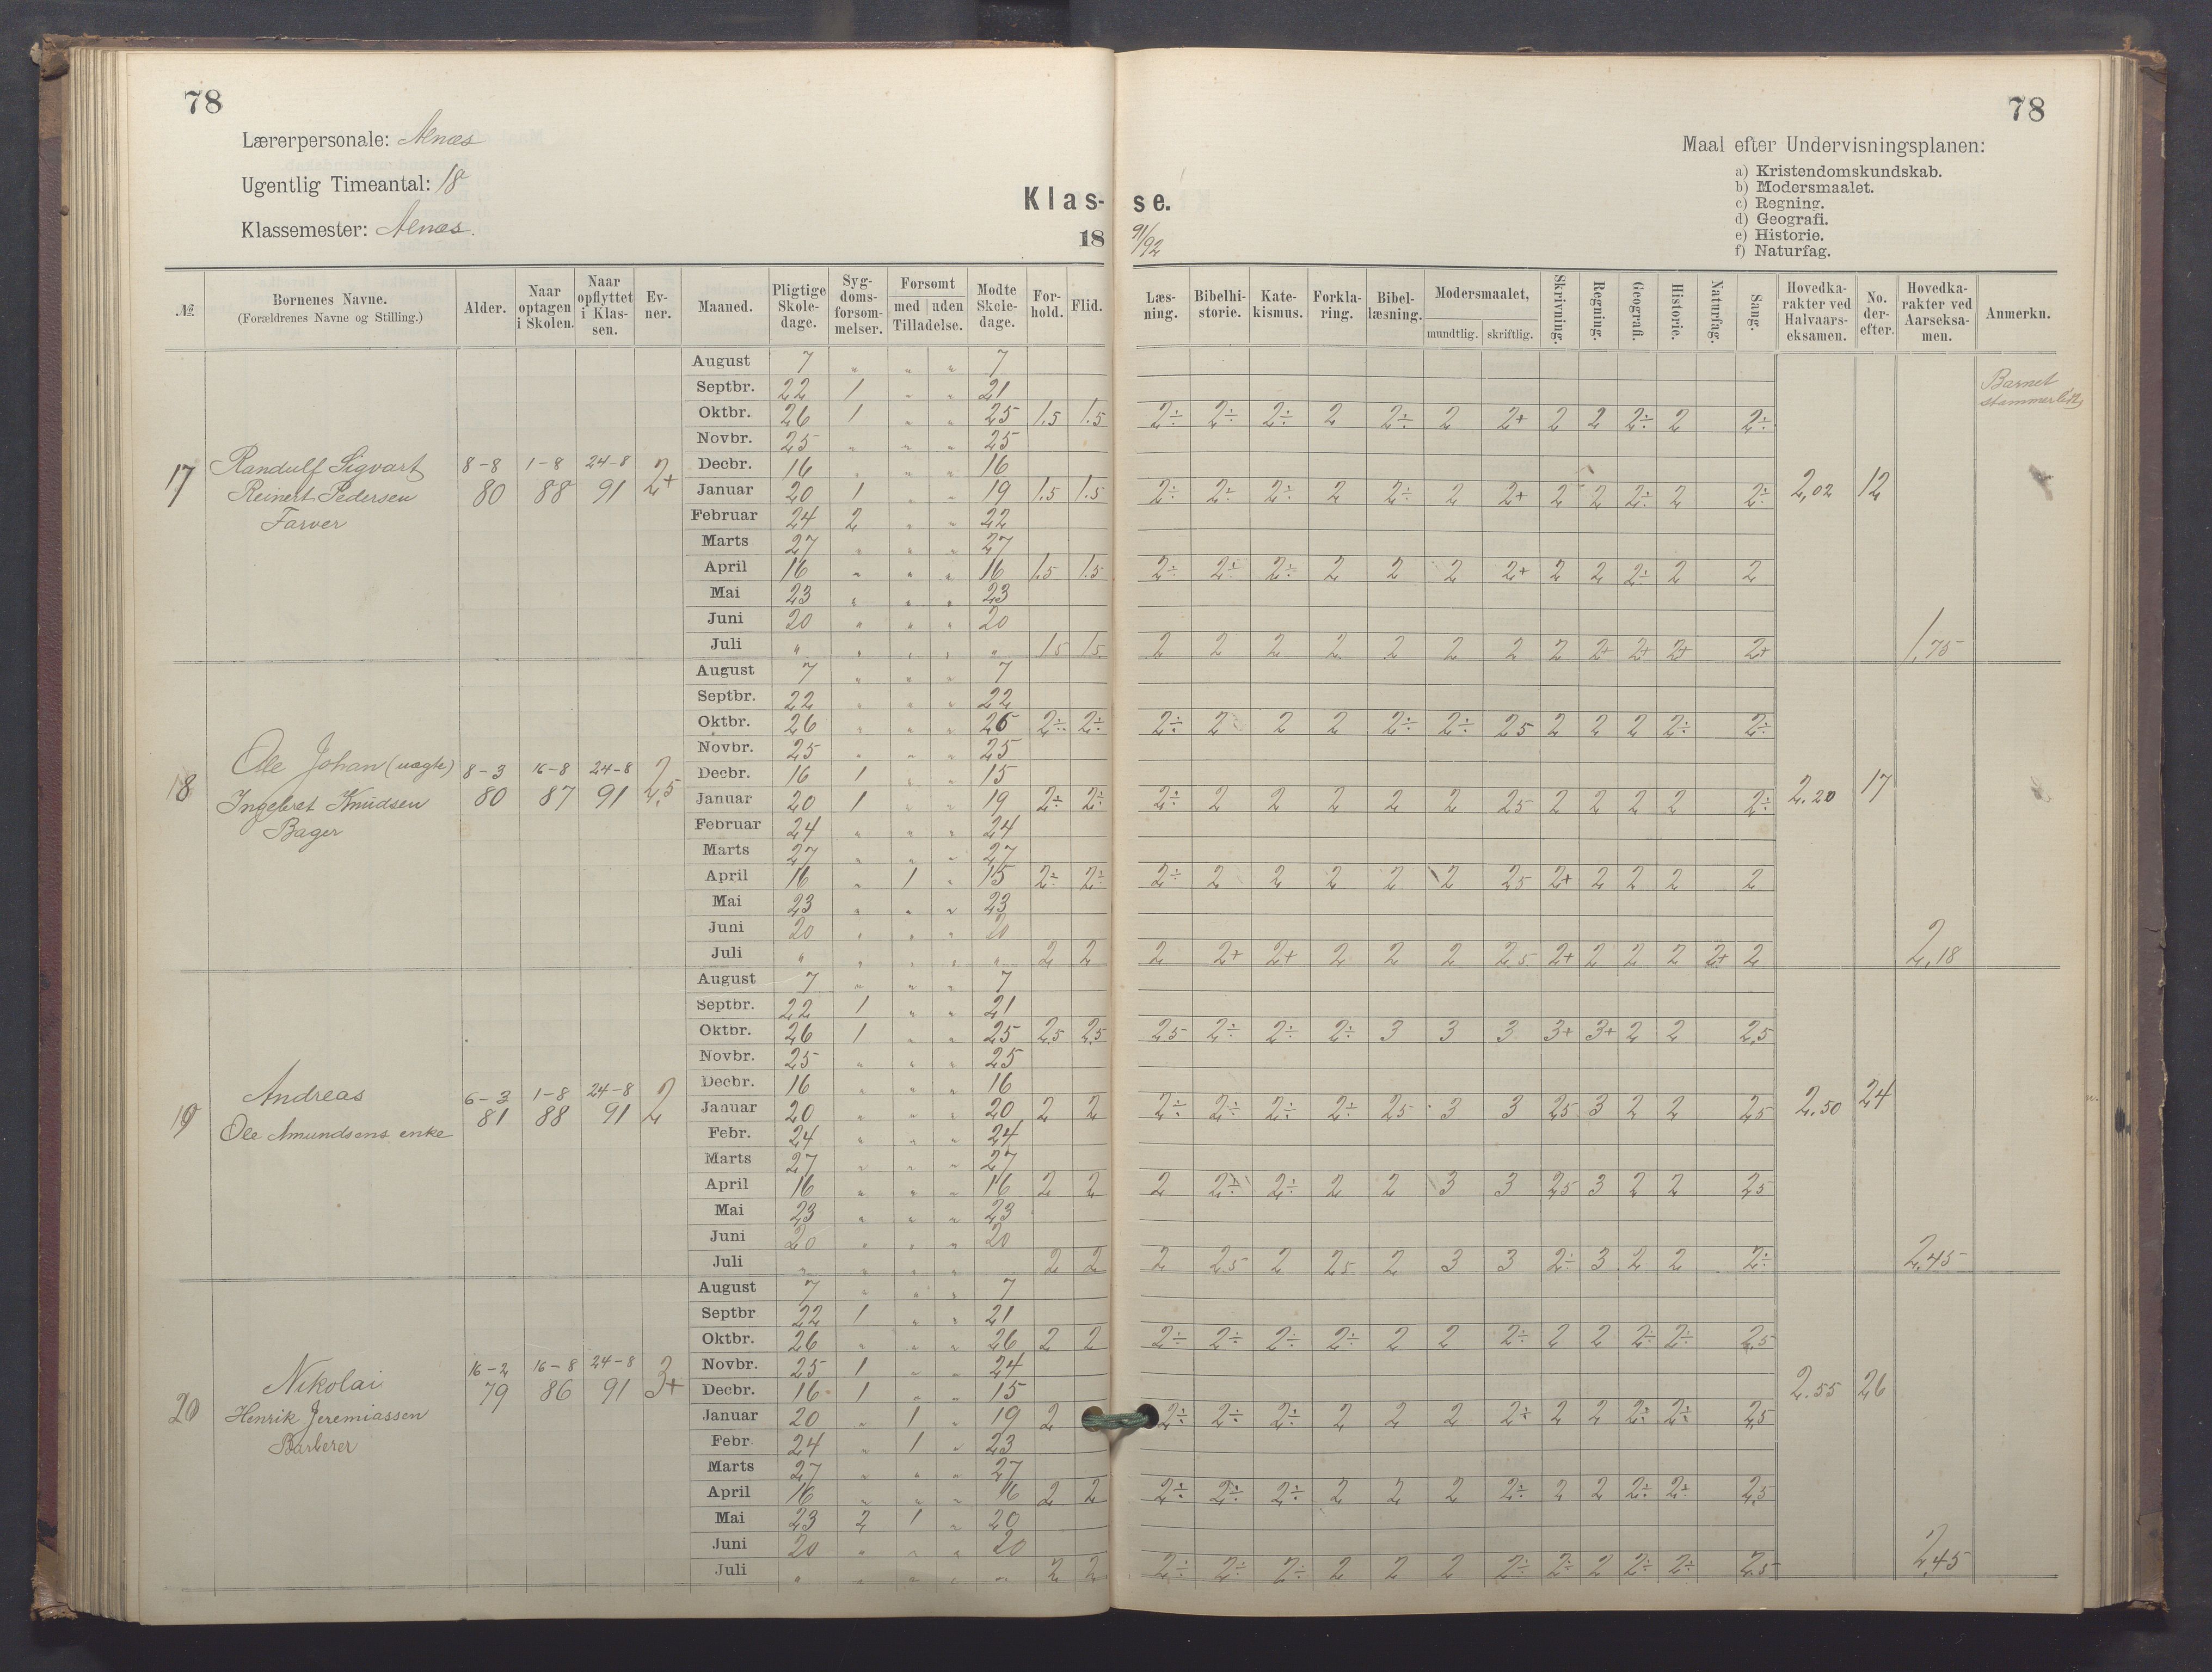 78
78
Lærerpersonale: Aenæs
Ugentlig Timeantal: 18
Klassemester: Aenæs.
Klas-
se.
18
91/92
Maal efter Undervisningsplanen:
a) Kristendomskundskab.
b) Modersmaalet.
c) Regning.
d) Geografi.
e) Historie.
f) Naturfag.
№ Børnenes Navne. (Forældrenes Navne og Stilling.) Alder. Naar optagen i Skolen. Naar opflyttet i Klassen. Evner. Maaned. Pligtige Skoledage. Sygdomsforsømmelser. Forsømt med uden Tilladelse. Mødte Skoledage. Forhold. Flid. Læsning. Bibelhistorie. Katekismus. Forklaring. Bibellæsning. Modersmaalet, mundtlig. skriftlig. Skrivning. Regning. Geografi. Historie. Naturfag. Sang. Hovedkarakter ved Halvaarseksamen. No. derefter. Hovedkarakter ved Aarseksamen. Anmerkn.
17 Randulf Sigvart
Reinert Pedersen
Farver
8-8 80 1-8 88 24-8 91 2+
August 7 " " " 7
Septbr. 22 1 " " 21
Oktbr. 26 1 " " 25 1.5 1.5 2÷ 2÷ 2÷ 2 2÷ 2 2+ 2 2 2÷ 2 2÷
Novbr. 25 " " " 25
Decbr. 16 " " " 16
Januar 20 1 " " 19 1.5 1.5 2÷ 2÷ 2÷ 2 2÷ 2 2+ 2 2 2÷ 2 2÷ 2,02 12
Februar 24 2 " " 22
Marts 27 " " " 27
April 16 " " " 16 1.5 1.5 2÷ 2÷ 2÷ 2 2 2 2+ 2 2 2÷ 2 2
Mai 23 " " " 23
Juni 20 " " " 20
Juli " " " " " 15 15 2 2 2 2 2 2 2 2 2+ 2+ 2+ 2+ 1,75
Barnet
18 Ole Johan (uægte)
Ingebret Knudsen
Bager
8-3 80 16-8 87 24-8 91 2,5
August 7 " " " 7
Septbr. 22 " " " 22
Oktbr. 26 " " " 26 2÷ 2÷ 2÷ 2 2 2 2÷ 2÷ 25 2 2 2 2÷ 2÷
Novbr. 25 " " " 25
Decbr. 16 1 " " 15
Januar 20 1 " " 19 2÷ 2÷ 2÷ 2 2 2 2 2 25 2 2 2 2 2÷ 2.20 17
Februar 24 " " " 24
Marts 27 " " " 27
April 16 " 1 " 15 2÷ 2÷ 2÷ 2 2 2 2 2 25 2+ 2 2 2 2
Mai 23 " " " 23
Juni 20 " " " 20
Juli " " " " " 2 2 2 2+ 2+ 2 2 2 2.5 2+ 2 2 2 2+ 2 2,18
19 Andreas
Ole Amundsens enke
6-3 81 1-8 88 24-8 91 2
August 7 " " " 7
Septbr. 22 1 " " 21
Oktbr. 26 1 " " 25 2.5 2.5 25 2÷ 2÷ 2÷ 3 3 3 3+ 3+ 2 2 2,5
Novbr. 25 " " " 25
Decbr. 16 " " " 16
Januar 20 " " " 20 2 2 2÷ 2÷ 2÷ 2÷ 25 3 3 25 3 2 2 25 2.50 24
Febr. 24 " " " 24
Marts 27 " " " 27
April 16 " " " 16 2 2 2 2÷ 2÷ 2 2 3 3 25 3 2 2 25
Mai 23 " " " 23
Juni 20 " " " 20
Juli " " " " 2 2 2 2.5 2 25 2 3 3 2÷ 3 2 2 2÷ 2,45
20 Nikolai
Henrik Jeremiassen
Barberer
16-2 79 16-8 86 24-8 91 3+
August 7 " " " 7
Septbr 22 1 " " 21
Oktbr. 26 " " " 26 2 2 2÷ 2÷ 2÷ 2÷ 2 2 2÷ 2 2 2÷ 2÷ 2,5
Novbr. 25 1 " " 24
Decbr. 16 1 " " 15 2.55 26
Januar 20 " 1 " 19 2 2÷ 2÷ 2÷ 2 2 2 2÷ 2 2 2÷ 2÷ 2,5
Febr 24 " 1 " 23
Marts 27 " " " 27
April 16 " " " 16 2 2 2÷ 2÷ 2÷ 2 2 2 2÷ 2 2 2÷ 2÷ 2,5
Mai 23 2 1 " 20
Juni 20 " " " 20
Juli " " " " " 2 2 2÷ 2÷ 2÷ 2 2 2 2÷ 2÷ 2 2÷ 2÷ 2.5 2,45